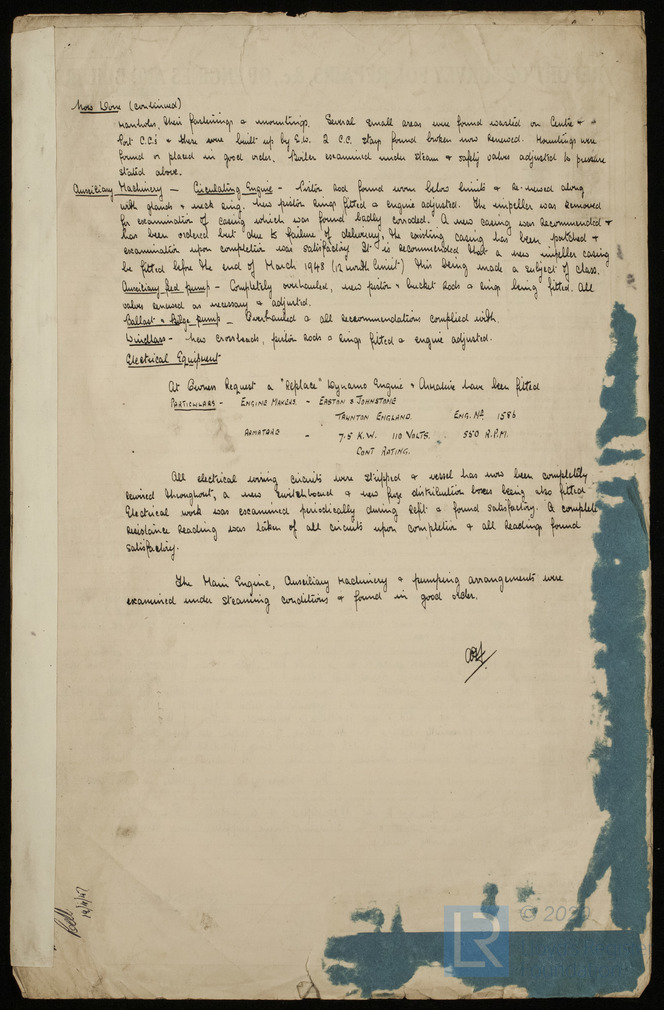 Now Done (continued)
Manholes, their fastenings & mountings. Several small areas were found wasted on Centre &
Port C.C's & these were built up by E.W. 2 C.C. stays found broken now renewed. Mountings were
found or placed in good order. Boiler examined under steam & safety valves adjusted to pressure
stated above.
Auxiliary Machinery — Circulating Engine - Piston rod found worn below limits & re-newed along
with glands & neck ring. New piston rings fitted & engine adjusted. The impeller was removed
for examination of casing which was found badly corroded. A new casing was recommended &
has been ordered but due to failure of delivery, the existing casing has been patched &
examination upon completion was satisfactory. It is recommended that a new impeller casing
be fitted before the end of March 1948 (12 month limit) this being made a subject of class.
Auxiliary feed pump - Completely overhauled, new piston & bucket rods & rings being fitted. All
valves renewed as necessary & adjusted.
Ballast & Bilge pump - Overhauled & all recommendations complied with.
Windlass - New crossheads, piston rods & rings fitted & engine adjusted.
Electrical Equipment
At Owners Request a "Replace" Dynamo Engine & Armature have been fitted
PARTICULARS - ENGINE MAKERS - EASTON & JOHNSTONE
TAUNTON ENGLAND. ENG. No 1586
ARMATURE - 7.5 K.W. 110 VOLTS. 550 R.P.M.
CONT RATING.
All electrical wiring circuits were stripped & vessel has now been completely
rewired throughout, a new switchboard & new fuse distribution boxes being also fitted.
Electrical work was examined periodically during refit & found satisfactory. A complete
resistance reading was taken of all circuits upon completion & all readings found
satisfactory.
The Main Engine, Auxiliary Machinery & pumping arrangements were
examined under steaming conditions & found in good order.
LR